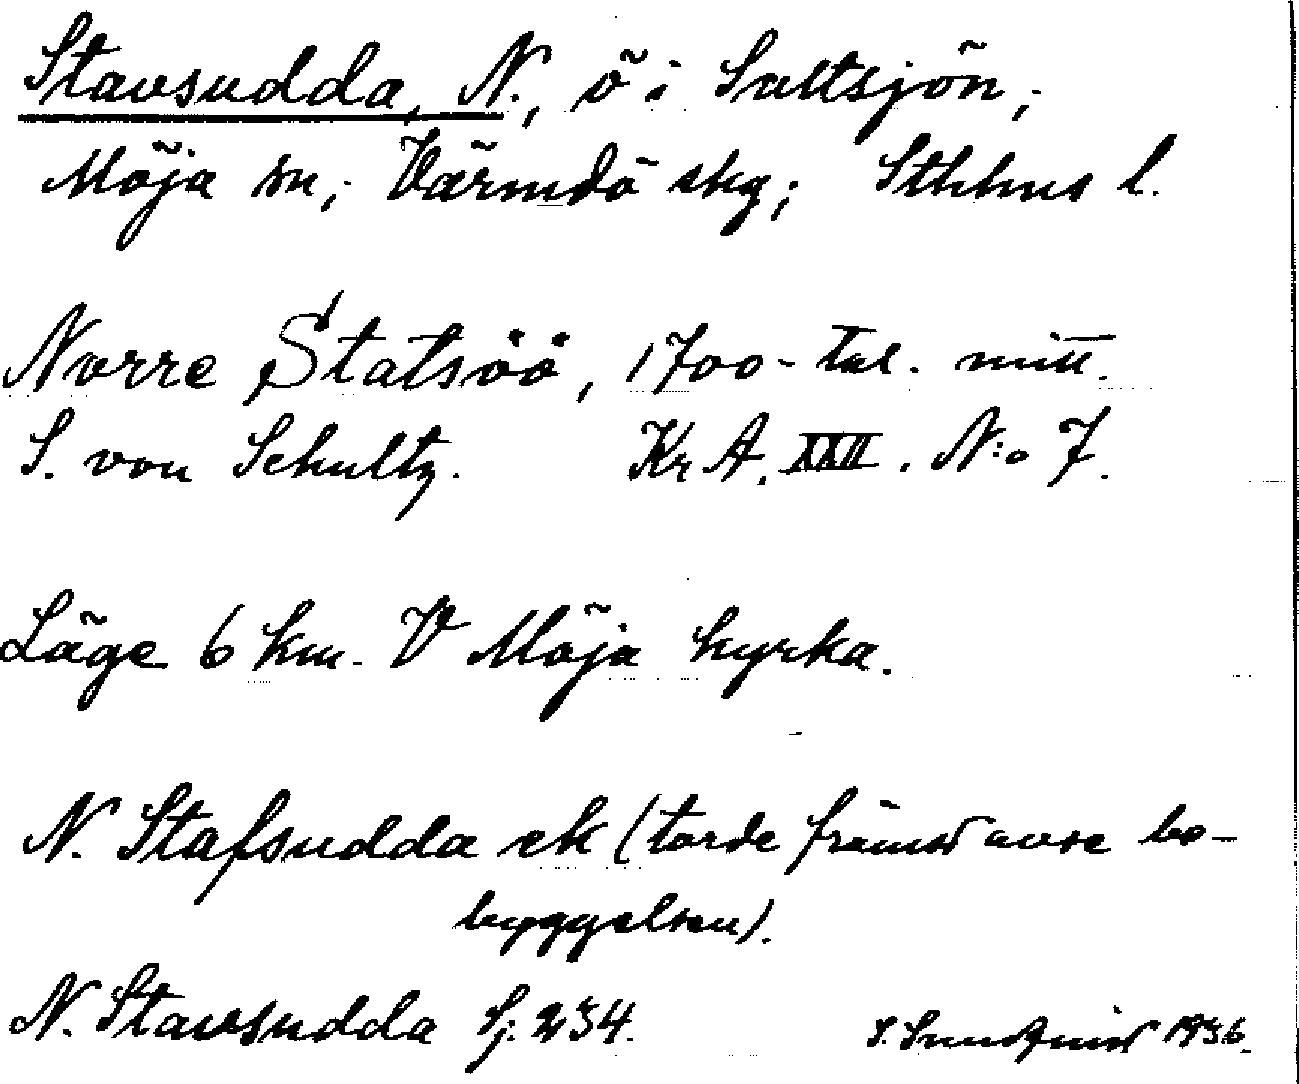 Stavsudda, N., ö i Saltsjön,
Möja sn, Värmdö skg; Sthlms l.
Norre Statsöö, 1700-tal. mitt.
S. von Schultz. Kr A. XXII. N:o 7.
Läge 6 km. V Möja kyrka.
N. Stafsudda ek (torde främst avse be-
byggelsen).
N. Stavsudda Sj. 234.
S. Sundquist 1936.